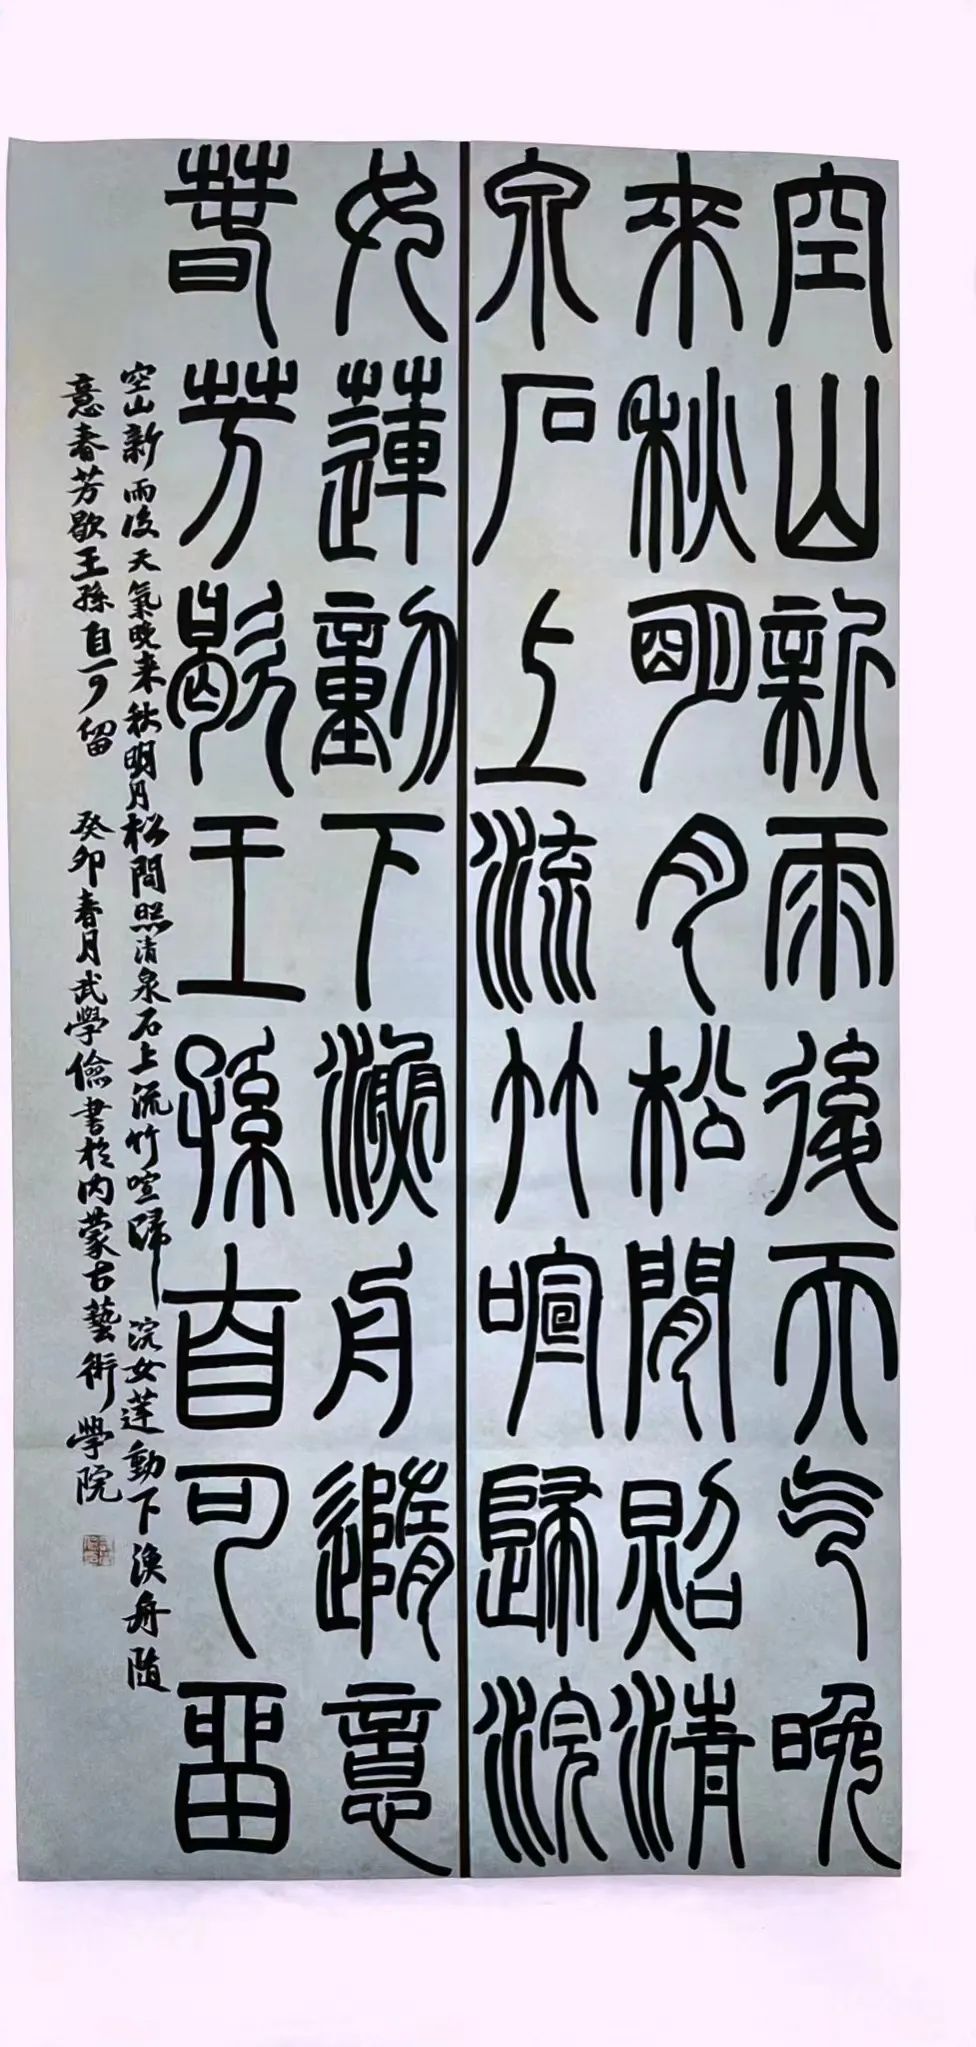 空山新雨後天气晚
來秋朙月松閒照清
泉石上流竹喧歸浣
女蓮動下漁舟隨意
春芳歇王孫自可留
空山新雨後天氣晚来秋明月松間照清泉石上流竹喧歸浣女莲動下漁舟随
意春芳歇王孫自可留 癸卯春月武學儉書於内蒙古藝術學院